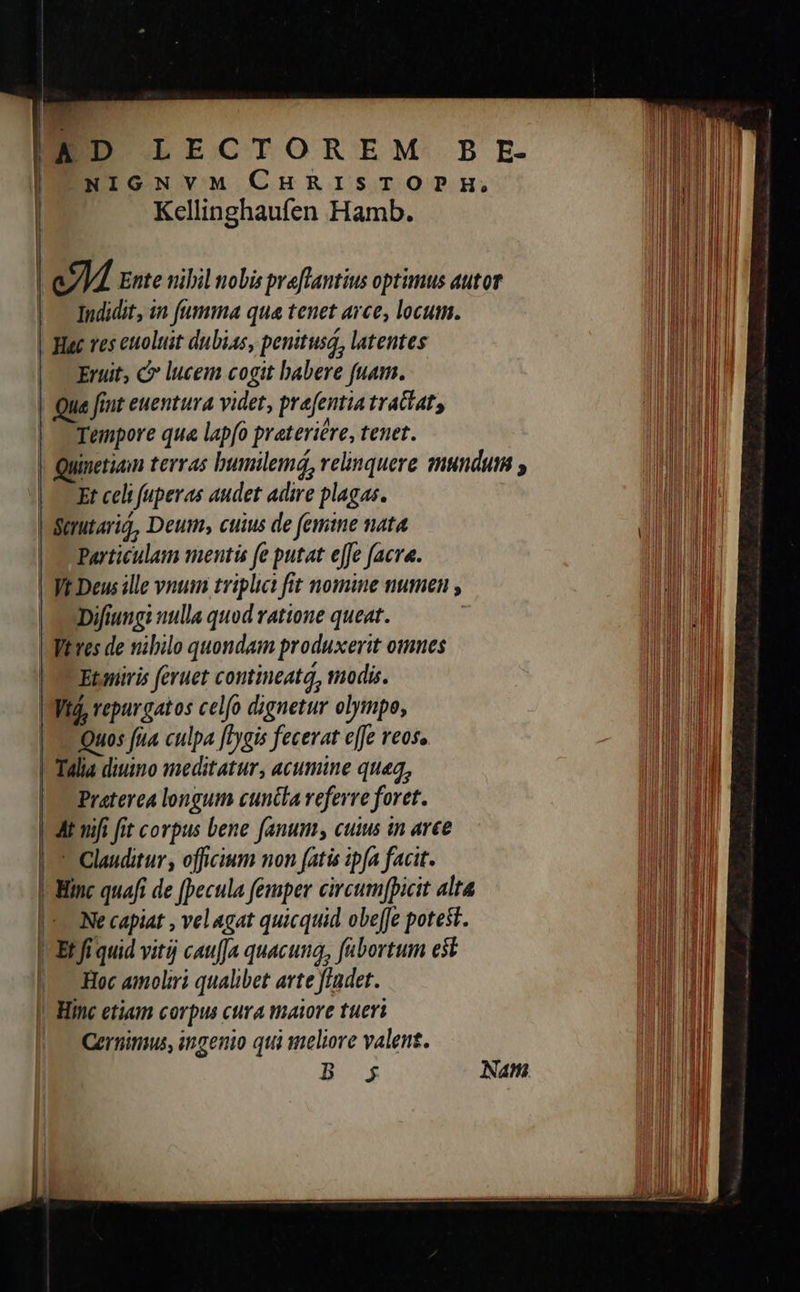 AD LECTOREM BE-
NIGNVM CHRISTOPH.
Kellinghauſen Hamb.
MEnte nihil nobis præſtantius optimus autor
Indidit, in ſumma quæ tenet arce, locum.
Hæc res euoluit dubias, penitusq́, latentes
Eruit, & lucem cogit habere ſuam.
Quæ ſint euentura videt, præſentia tractat,
Tempore quæ lapſo præteriêre, tenet.
Quinetiam terras humilemq́, relinquere mundum,
Et celi ſuperas audet adire plagas.
Scrutariq́, Deum, cuius de ſemine nata
Particulam mentis ſe putat eſſe ſacræ.
Vt Deus ille vnum triplici ſit nomine numen,
Diſiungi nulla quod ratione queat.
Vt res de nihilo quondam produxerit omnes
Et miris ſeruet contineatq́, modis.
Vtq́, repurgatos celſo dignetur olympo,
Quos ſua culpa ſtygis fecerat eſſe reos.
Talia diuino meditatur, acumine quæq,
Præterea longum cuncta referre foret.
At niſi ſit corpus bene ſanum, cuius in arce
Clauditur, officium non ſatis ipſa facit.
Hinc quaſi de ſpecula ſemper circumſpicit alta
Ne capiat, vel agat quicquid obeſſe poteſt.
Et ſi quid vitij cauſſa quacunq, ſubortum eſt
Hoc amoliri qualibet arte ſtudet.
Hinc etiam corpus cura maiore tueri
Cernimus, ingenio qui meliore valent.
B 5 Nam